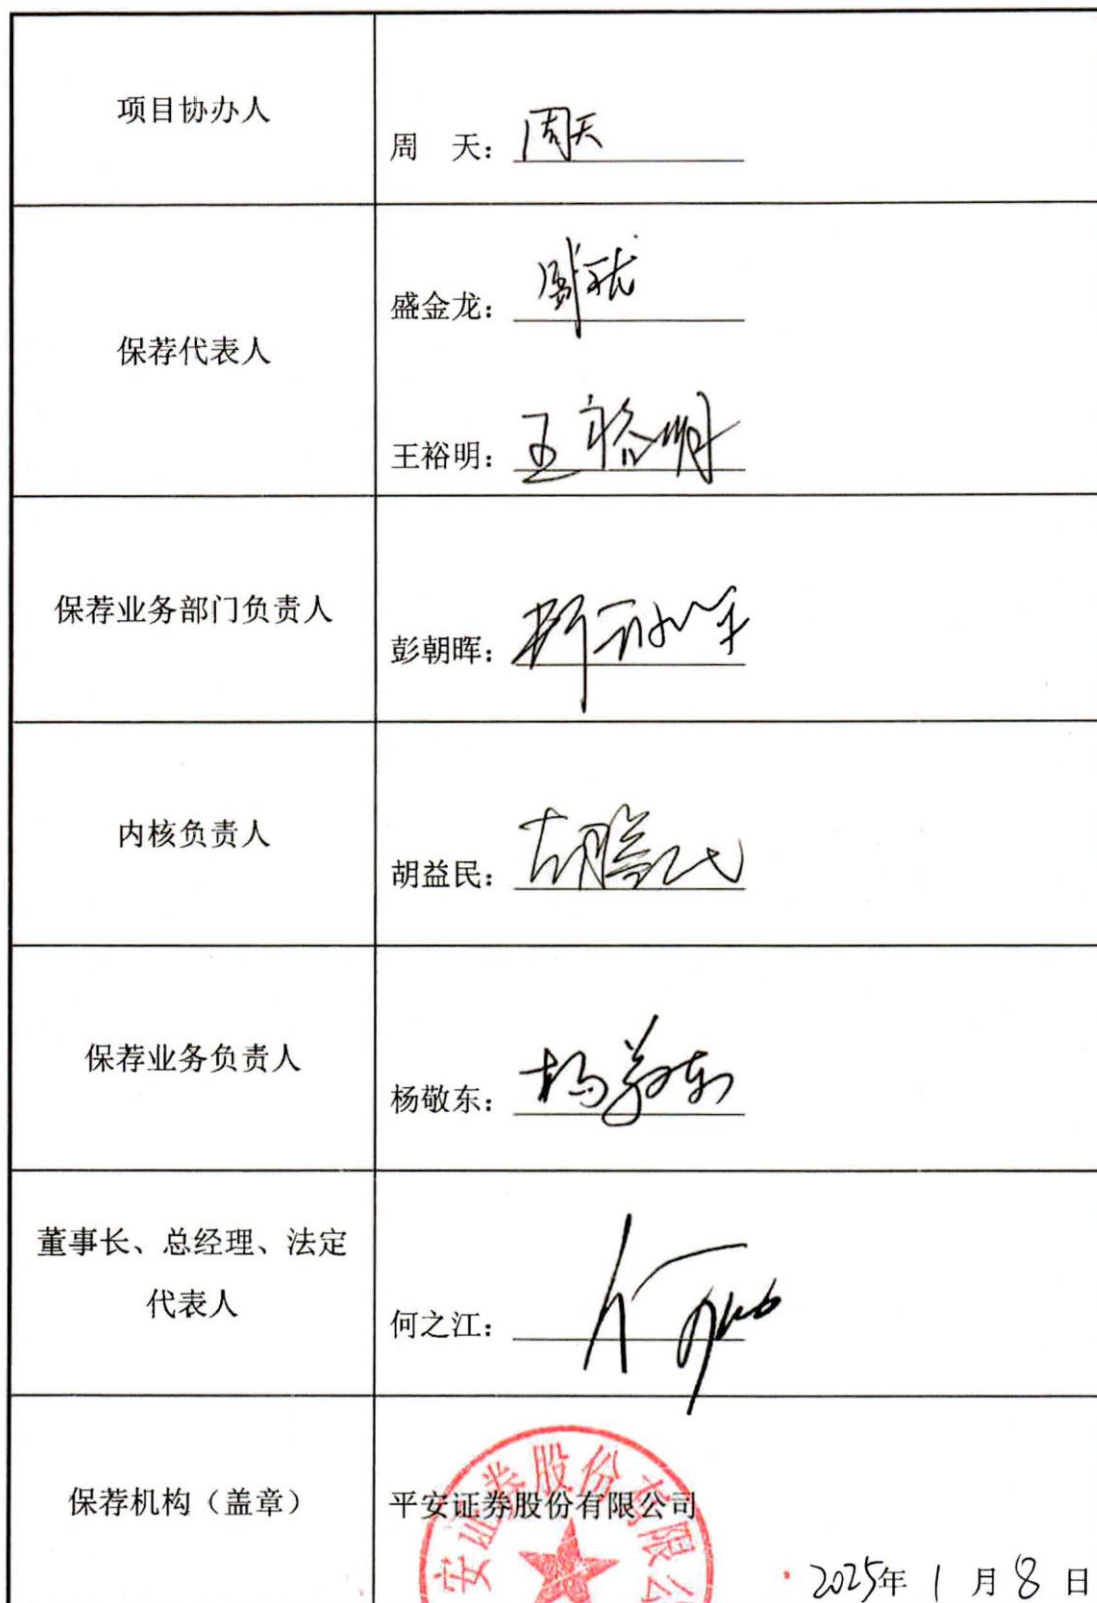 项目协办人
周 天：周天
保荐代表人
盛金龙：
王裕明：王裕明
保荐业务部门负责人
彭朝晖：
内核负责人
胡益民：胡益民
保荐业务负责人
杨敬东：杨敬东
董事长、总经理、法定
代表人
何之江：
保荐机构（盖章）
平安证券股份有限公司
安证券股份有限公
2025年 1 月 8 日